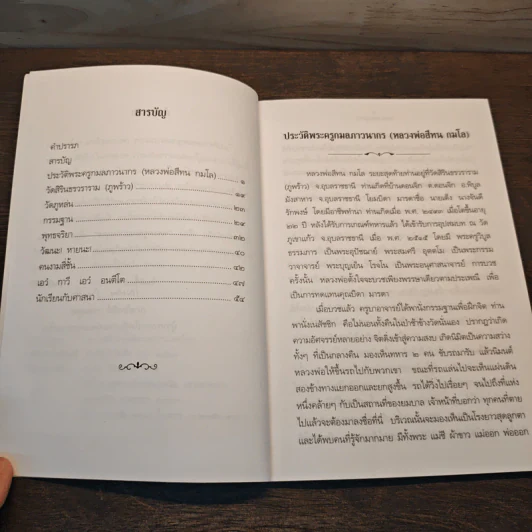 สารบัญ
คำปรารภ
สารบัญ
ประวัติพระครูกมลภาวนากร (หลวงพ่อสีทน กมโล) ..... ๑
วัดสิรินธรวราราม (ภูพร้าว) ..... ๑๙
วัดภูหล่น ..... ๒๓
กรรมฐาน ..... ๒๙
พุทธจริยา ..... ๓๒
วัฒนะ! หายนะ! ..... ๔๐
คนงามสี่ชั้น ..... ๔๒
เอวํ ภาวี เอวํ อนตีโต ..... ๔๗
นักเรียนกับศาสนา ..... ๕๔
ประวัติพระครูกมลภาวนากร (หลวงพ่อสีทน กมโล)
หลวงพ่อสีทน กมโล ระยะสุดท้ายท่านอยู่ที่วัดสิรินธรวราราม
(ภูพร้าว) จ.อุบลราชธานี ท่านเกิดที่บ้านดอนจิก ต.ดอนจิก อ.พิบูล
มังสาหาร จ.อุบลราชธานี โยมบิดา มารดาชื่อ นายเต็ง นางจันดี
รักพงษ์ โดยมีอาชีพทำนา ท่านเกิดเมื่อ พ.ศ. ๒๔๗๓ เมื่อโตขึ้นอายุ
๒๒ ปี หลังได้รับการเกณฑ์ทหารแล้ว ได้เข้ารับการอุปสมบท ณ วัด
ภูเขาแก้ว จ.อุบลราชธานี เมื่อ พ.ศ. ๒๔๙๕ โดยมี พระครูวิบูล
ธรรมภาณ เป็นพระอุปัชฌาย์ พระสมศรี อุตตโม เป็นพระกรรม
วาจาจารย์ พระบุญเย็น โรจโน เป็นพระอนุศาสนาจารย์ การบวช
ครั้งนั้น หลวงพ่อตั้งใจจะบวชเพียงพรรษาเดียวตามประเพณี เพื่อ
เป็นการทดแทนคุณบิดา มารดา
เมื่อบวชแล้ว ครูบาอาจารย์ได้พานั่งกรรมฐานเพื่อฝึกจิต ท่าน
พานั่งเนสัชชิก คือไม่นอนทั้งคืนในป่าช้าข้างวัดนั่นเอง ปรากฏว่าเกิด
ความอัศจรรย์หลายอย่าง จิตดิ่งเข้าสู่ความสงบ เกิดนิมิตเป็นความสว่าง
ทั้งๆ ที่เป็นกลางคืน มองเห็นทหาร ๒ คน ขับรถมารับ แล้วนิมนต์
หลวงพ่อให้ขึ้นรถไปกับพวกเขา ขณะที่รถแล่นไปจะเห็นแผ่นดิน
สองข้างทางแยกออกและยกสูงขึ้น รถได้วิ่งไปเรื่อยๆ จนไปถึงที่แห่ง
หนึ่งคล้ายๆ กับเป็นสถานที่ของยมบาล เจ้าหน้าที่บอกว่า ทุกคนที่ตาย
ไปแล้วจะต้องมาลงชื่อที่นี่ บริเวณนั้นจะมองเห็นเป็นโรงยาวสุดลูกตา
และได้พบคนที่รู้จักมากมาย มีทั้งพระ แม่ชี ผ้าขาว แม่ออก พ่อออก